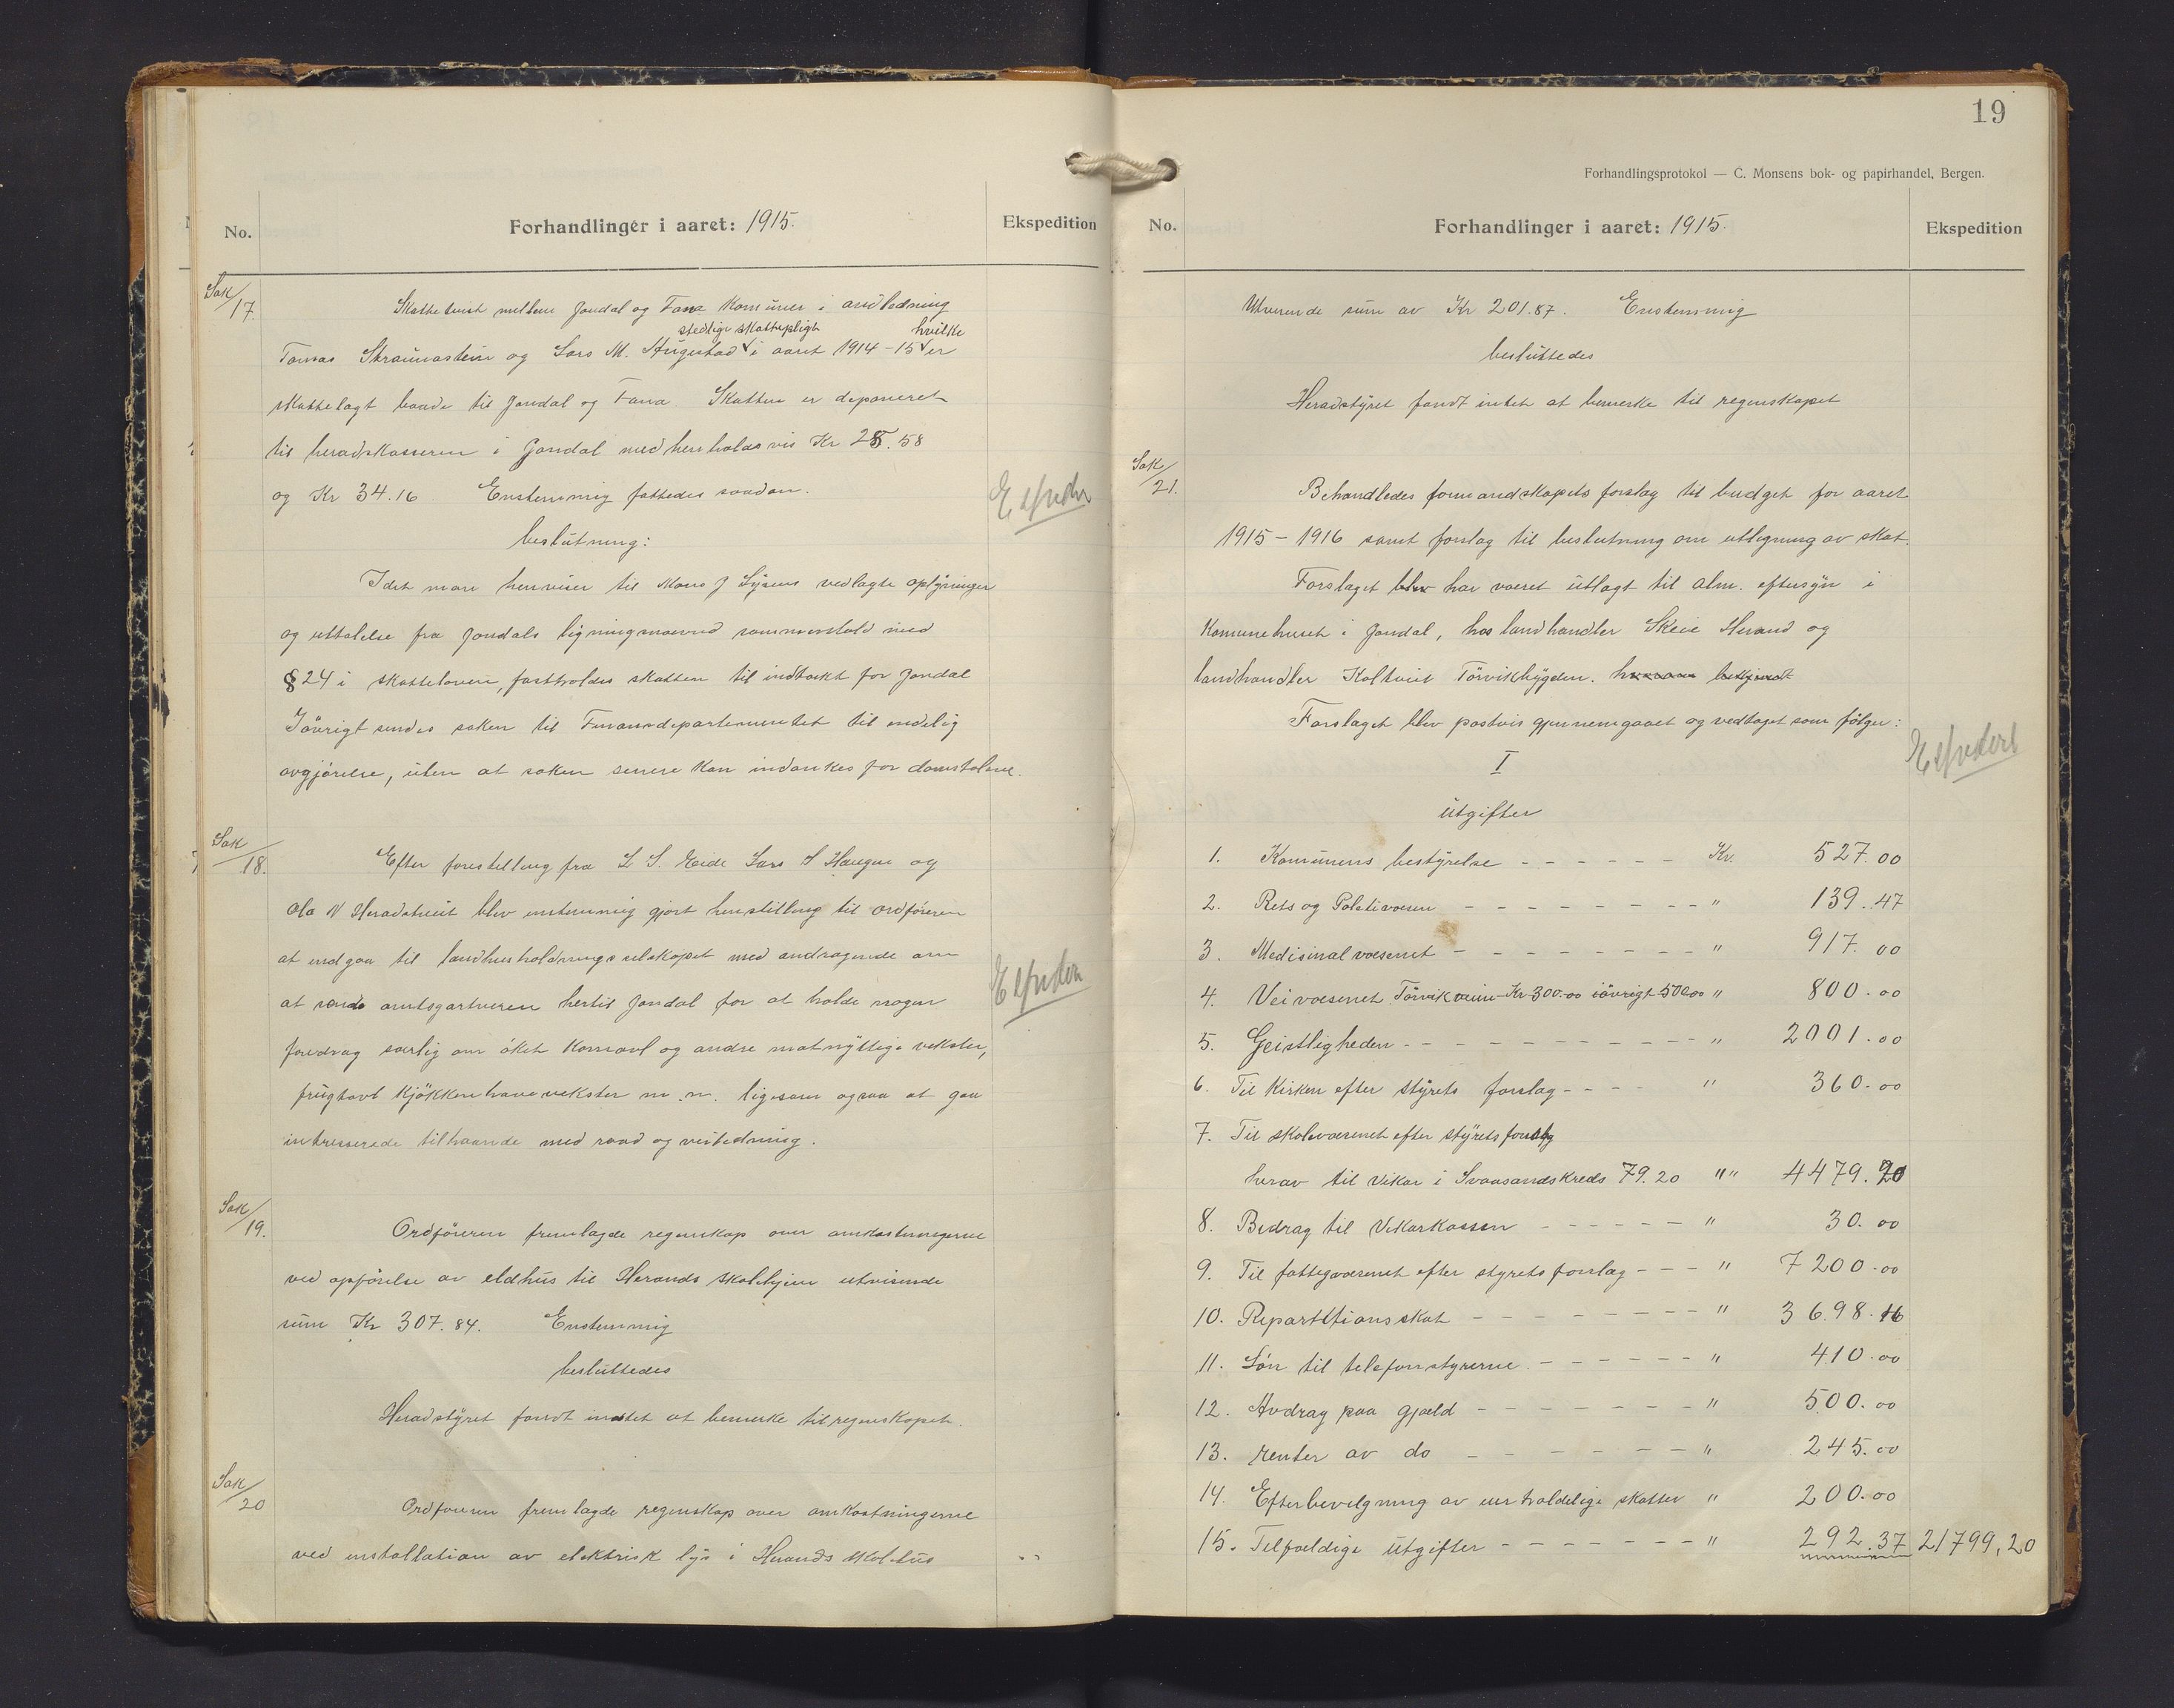 No.
Forhandlinger i aaret: 1915.
Ekspedition
Sak/17.
Skattetvist mellem Jondal og Fana Komuner i andledning
stedlige skattepligt hvilke
Tomas Straumastein og Lars M. Haugstad i aaret 1914-15 er
skattelagt baade til Jondal og Fana Skatten er deponeret
til heradskasseren i Jondal med henholdsvis Kr 25.58
og Kr 34.16 Enstemmig fattedes saadan.
beslutning:
Idet man henviser til Mons J Lysens vedlagte oplysninger
og uttalelse fra Jondals ligningsnævnd sammenhold med
§ 24 i skatteloven, fastholdes skatten til indtækt for Jondal
Iövrigt sendes saken til Finansdepartementet til endelig
avgjörelse, uten at saken senere kan indankes for domstolene.
Ekspeder
Sak/18.
Efter forestilling fra L S. Eide Lars S Haugen og
Ola N Heradstveit blev enstemmig gjort henstilling til ordföreren
at indgaa til landhusholdningsselskapet med andragende om
at sende amtsgartneren hertil Jondal for at holde nogen
foredrag særlig om öket kornavl og andre matnyttige vekster,
frugtavl kjökkenhavevekster m.m. ligesom ogsaa at gaa
intresserede tilhaande med raad og veiledning.
Ekspeder
Sak/19.
Ordföreren fremlagde regnskap over omkostningerne
ved opförelse av eldhus til Herands skolehjem utvisende
sum Kr 307.84. Enstemmig
besluttedes
Heradstyret fandt intet at bemerke til regnskapet.
Sak/20
Ordföreren fremlagde regnskap over omkostningerne
ved installation av elektrisk lys i Herands skolehus
19
Forhandlingsprotokol — C. Monsens bok- og papirhandel, Bergen.
No.
Forhandlinger i aaret: 1915.
Ekspedition
Utvisende sum av Kr 201.87. Enstemmig
besluttedes
Heradstyret fandt intet at bemerke til regnskapet
Sak/21.
Behandledes formandskapets forslag til budget for aaret
1915 - 1916 samt forslag til beslutning om utligning av skat.
Forslaget blev har været utlagt til alm. eftersyn i
Komunehuset i Jondal, hos landhandler Skeie Herand og
landhandler Koltveit Törvikbygden. bekjendt
Forslaget blev postvis gjennemgaaet og vedtaget som fölger:
Ekspedert
I
utgifter
1. Komunens bestyrelse - - - - - - Kr. 527.00
2. Rets og Politivæsen - - - - - - - - - " 139.47
3. Medisinalvæsenet - - - - - - - - - " 917.00
4. Veivæsenet Törvikveien Kr 300.00 iövrigt 500.00 " 800.00
5. Geistligheden - - - - - - - - - - - " 2001.00
6. Til Kirken efter styrets forslag - - - - " 360.00
7. Til skolevæsenet efter styrets forslag
herav til vikar i Svaasandskreds 79.20 " " 4479.20
8. Bidrag til Vikarkassen - - - - - - " 30.00
9. Til fattigvæsenet efter styrets forslag - - - " 7200.00
10. Repartitionsskat - - - - - - - - - " 3698.16
11. Lön til telefonstyrerne. - - - - - - " 410.00
12. Avdrag paa gjæld - - - - - - - " 500.00
13. renter av do - - - - - - - " 245.00
14. Efterbevilgning av uerholdelige skatter " 200.00
15. Tilfældige utgifter - - - - - - - " 292.37 21799,20